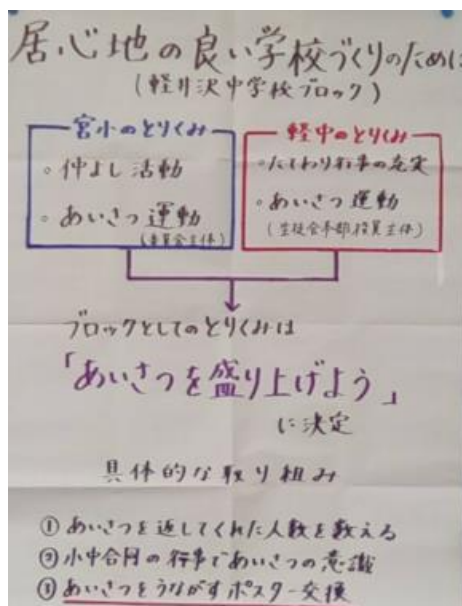 居心地の良い学校づくりのために
(軽井沢中学校ブロック)
宮小のとりくみ
◦仲よし活動
◦あいさつ運動
(委員会主体)
軽中のとりくみ
◦たてわり行事の充実
◦あいさつ運動
(生徒会本部役員主体)
ブロックとしてのとりくみは
「あいさつを盛り上げよう」
に決定
具体的な取り組み
①あいさつを返してくれた人数を数える
②小中合同の行事であいさつの意識
③あいさつをうながすポスター交換